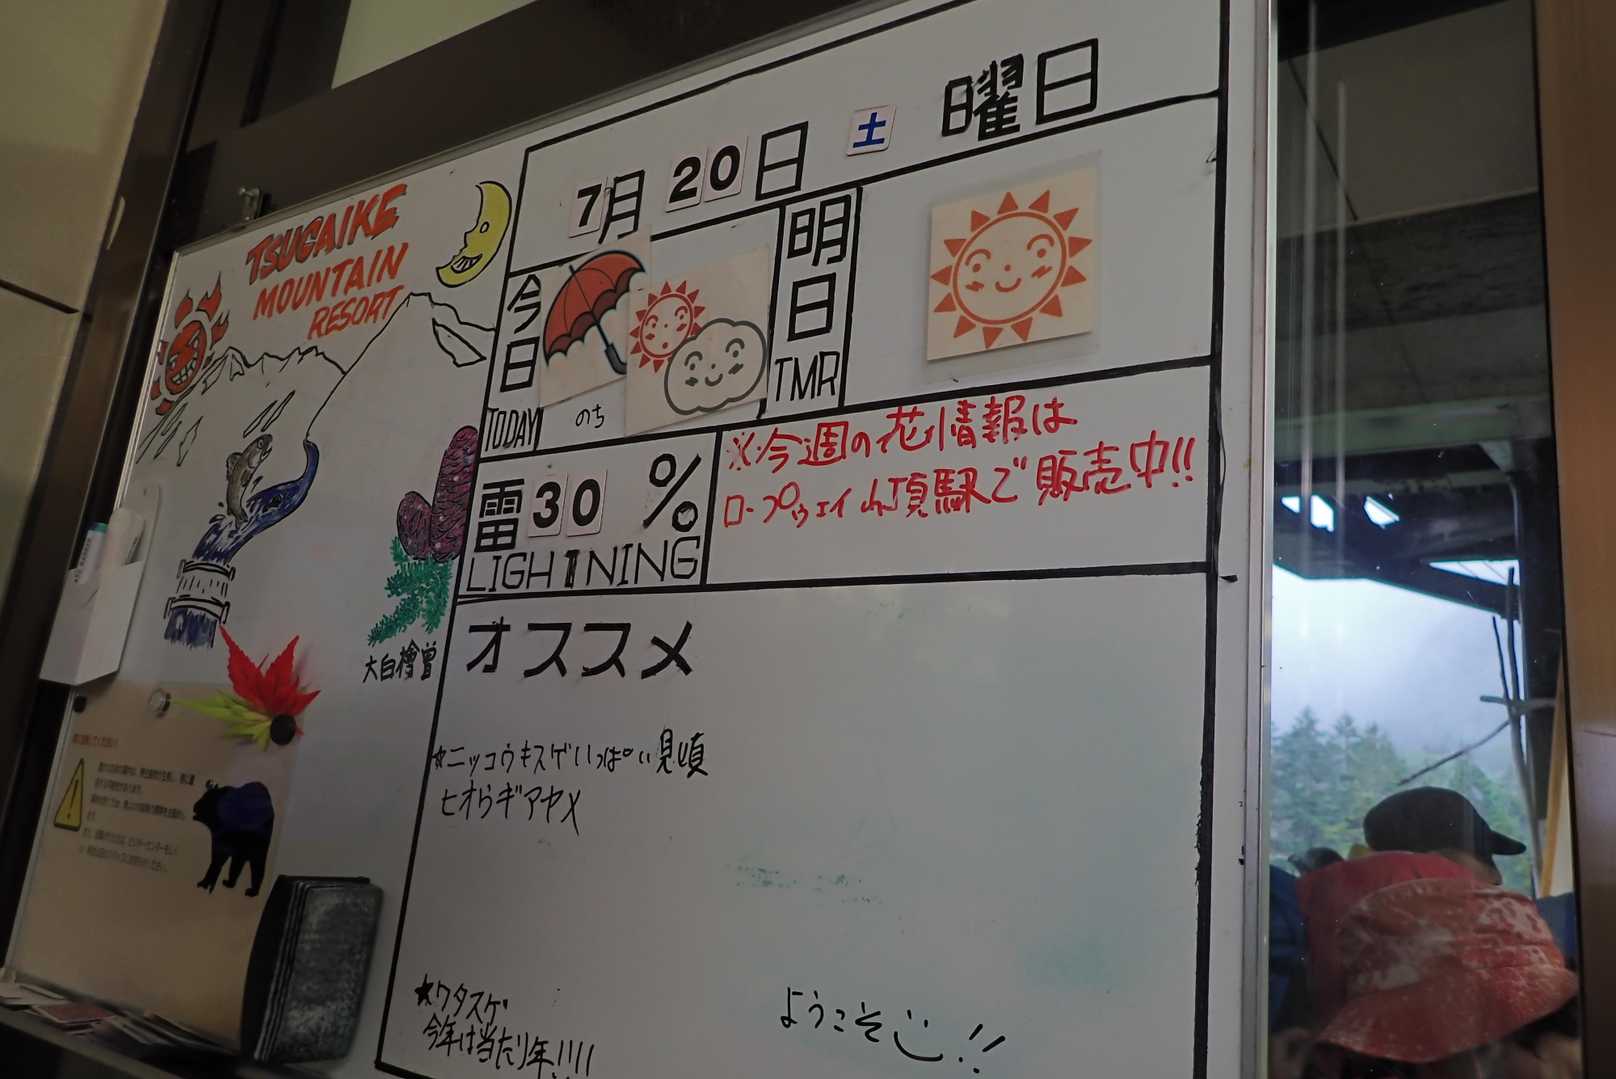 TSUGAIKE
MOUNTAIN
RESORT
7月20日 土 曜日
今日
TODAY
のち
明日
TMR
雷30%
LIGHTNING
※今週の花情報は
ロープウェイ山頂駅で販売中!!
オススメ
大白檜曽
☆ニッコウキスゲいっぱい見頃
ヒオウギアヤメ
★ワタスゲ
今年は当たり年!!!!
ようこそ !!